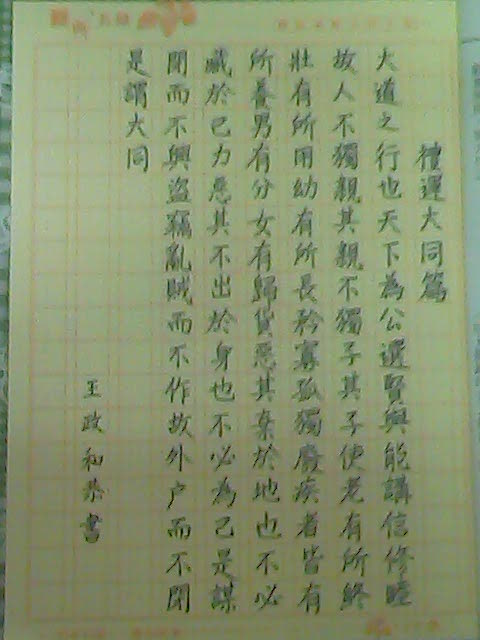 禮運大同篇
大道之行也天下為公選賢與能講信修睦
故人不獨親其親不獨子其子使老有所終
壯有所用幼有所長矜寡孤獨廢疾者皆有
所養男有分女有歸貨惡其棄於地也不必
藏於己力惡其不出於身也不必為己是謀
閉而不興盜竊亂賊而不作故外户而不閉
是謂大同
王政和恭書